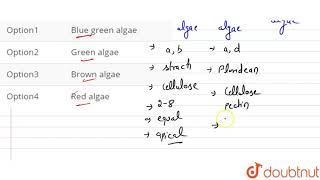 Option1 Blue green algae
Option2 Green algae
Option3 Brown algae
Option4 Red algae
algae algae
→ a, b → a, d
→ strach
→ cellulose → cellulose
pectin
→ 2-8
→ equal →
→ apical
doubtnut